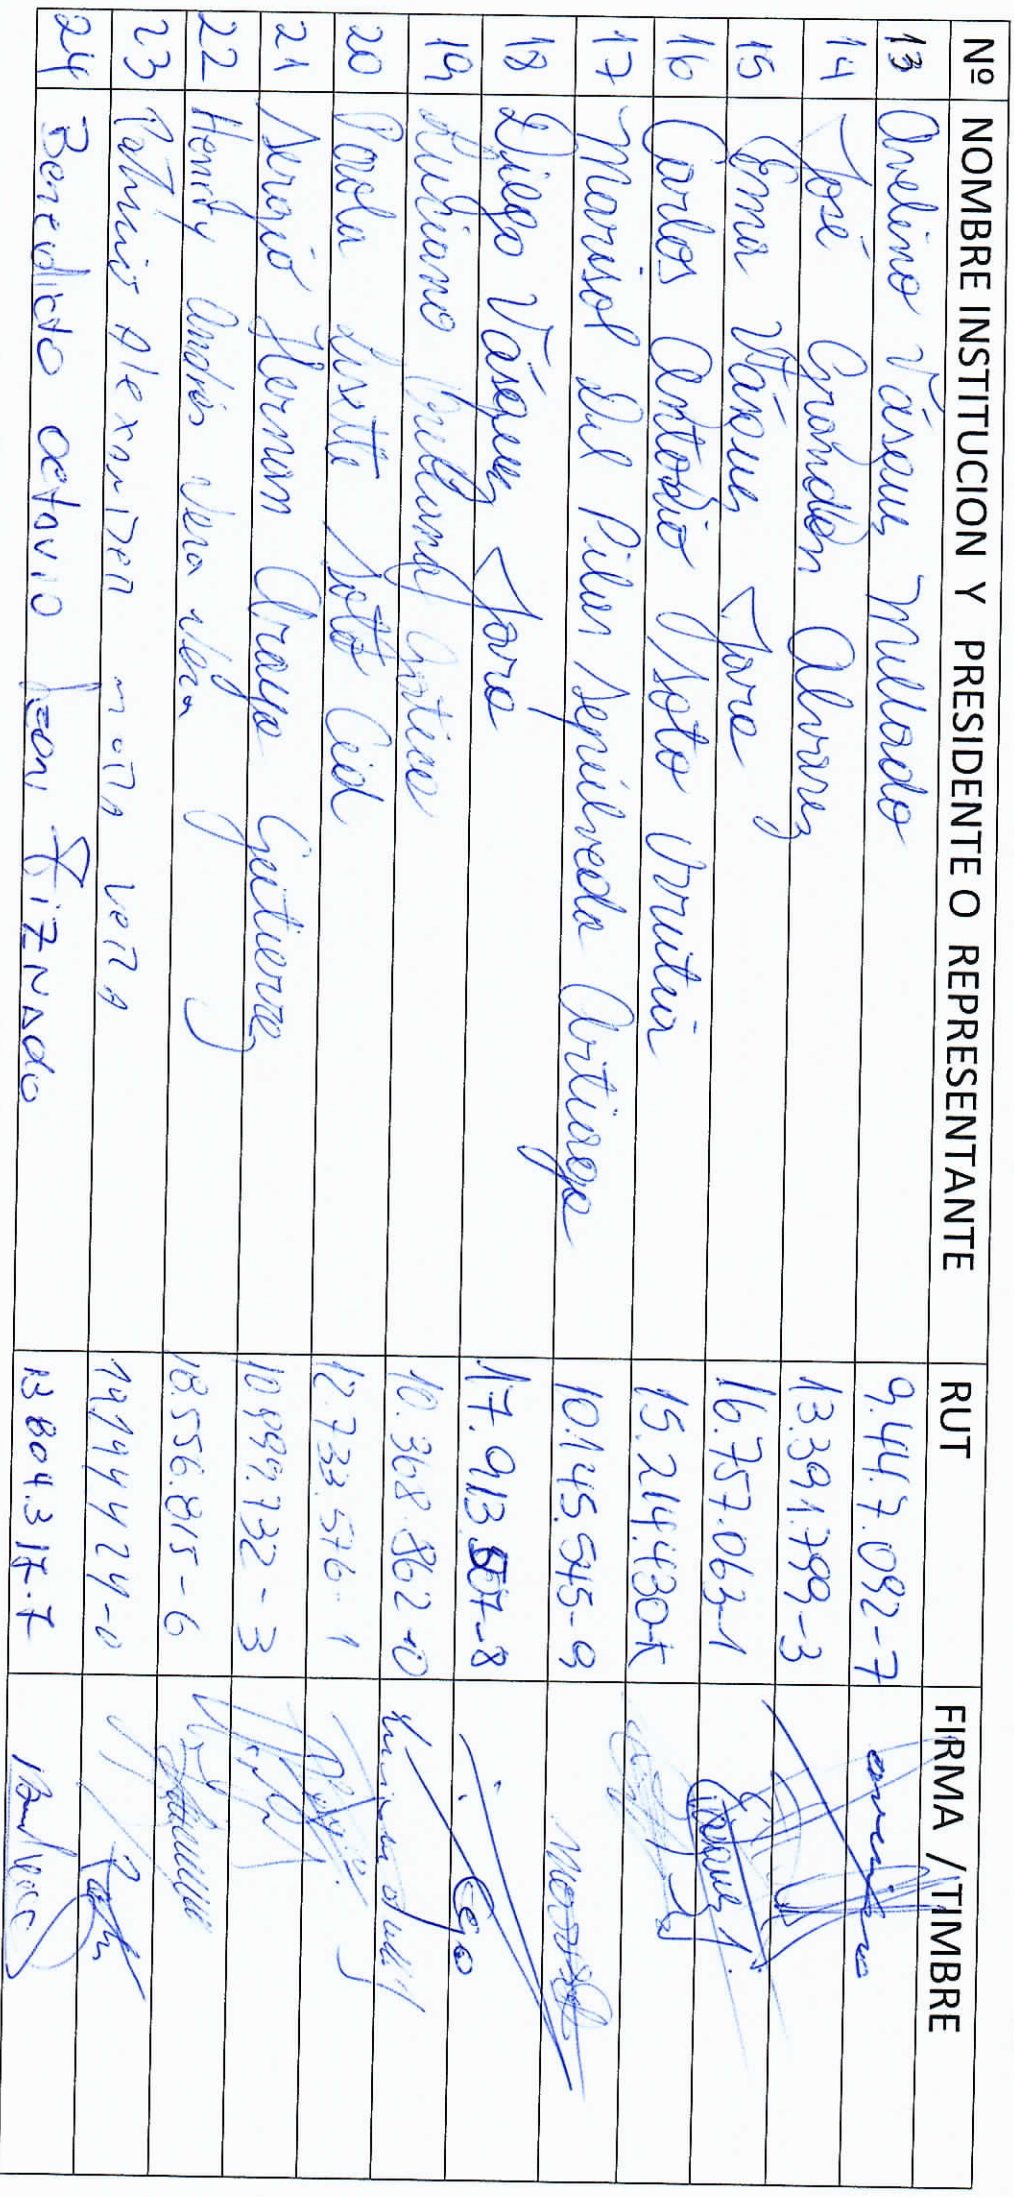 Nº NOMBRE INSTITUCION Y PRESIDENTE O REPRESENTANTE RUT FIRMA / TIMBRE
13 Avelino Vásquez Mellado 9.447.092-7
14 José Grandón Alvarez 13.391.799-3
15 Ema Vásquez Jara 16.757.063-1
16 Carlos Antonio Soto Urrutia 15.214.430-K
17 Marisol Del Pilar Sepúlveda Artiaga 10.145.545-9 Marisol
18 Diego Vásquez Jara 17.913.507-8 Diego
19 Luciano 10.368.862-0
20 Paola Lisette Soto Cid 12.733.576-1
21 Sergio Hernan Araya Gutierrez 10.999.732-3
22 Henrry Andrés Vera Vera 18.556.815-6
23 Patricio Alexander mora vera 19944424-0
24 Benedicto octavio Tiznado 13 804.317.7